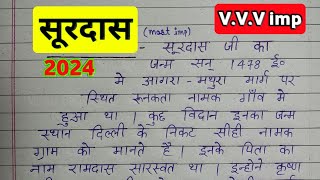 सूरदास
(most imp)
V.V.V imp
2024
- सूरदास जी का
जन्म सन् 1478 ई०
मे आगरा-मथुरा मार्ग पर
स्थित रूनकता नामक गाँव मे
हुआ था। कुछ विद्वान इनका जन्म
स्थान दिल्ली के निकट सीही नामक
ग्राम को मानते है। इनके पिता का
नाम रामदास सारस्वत था। इन्होने कृष्ण